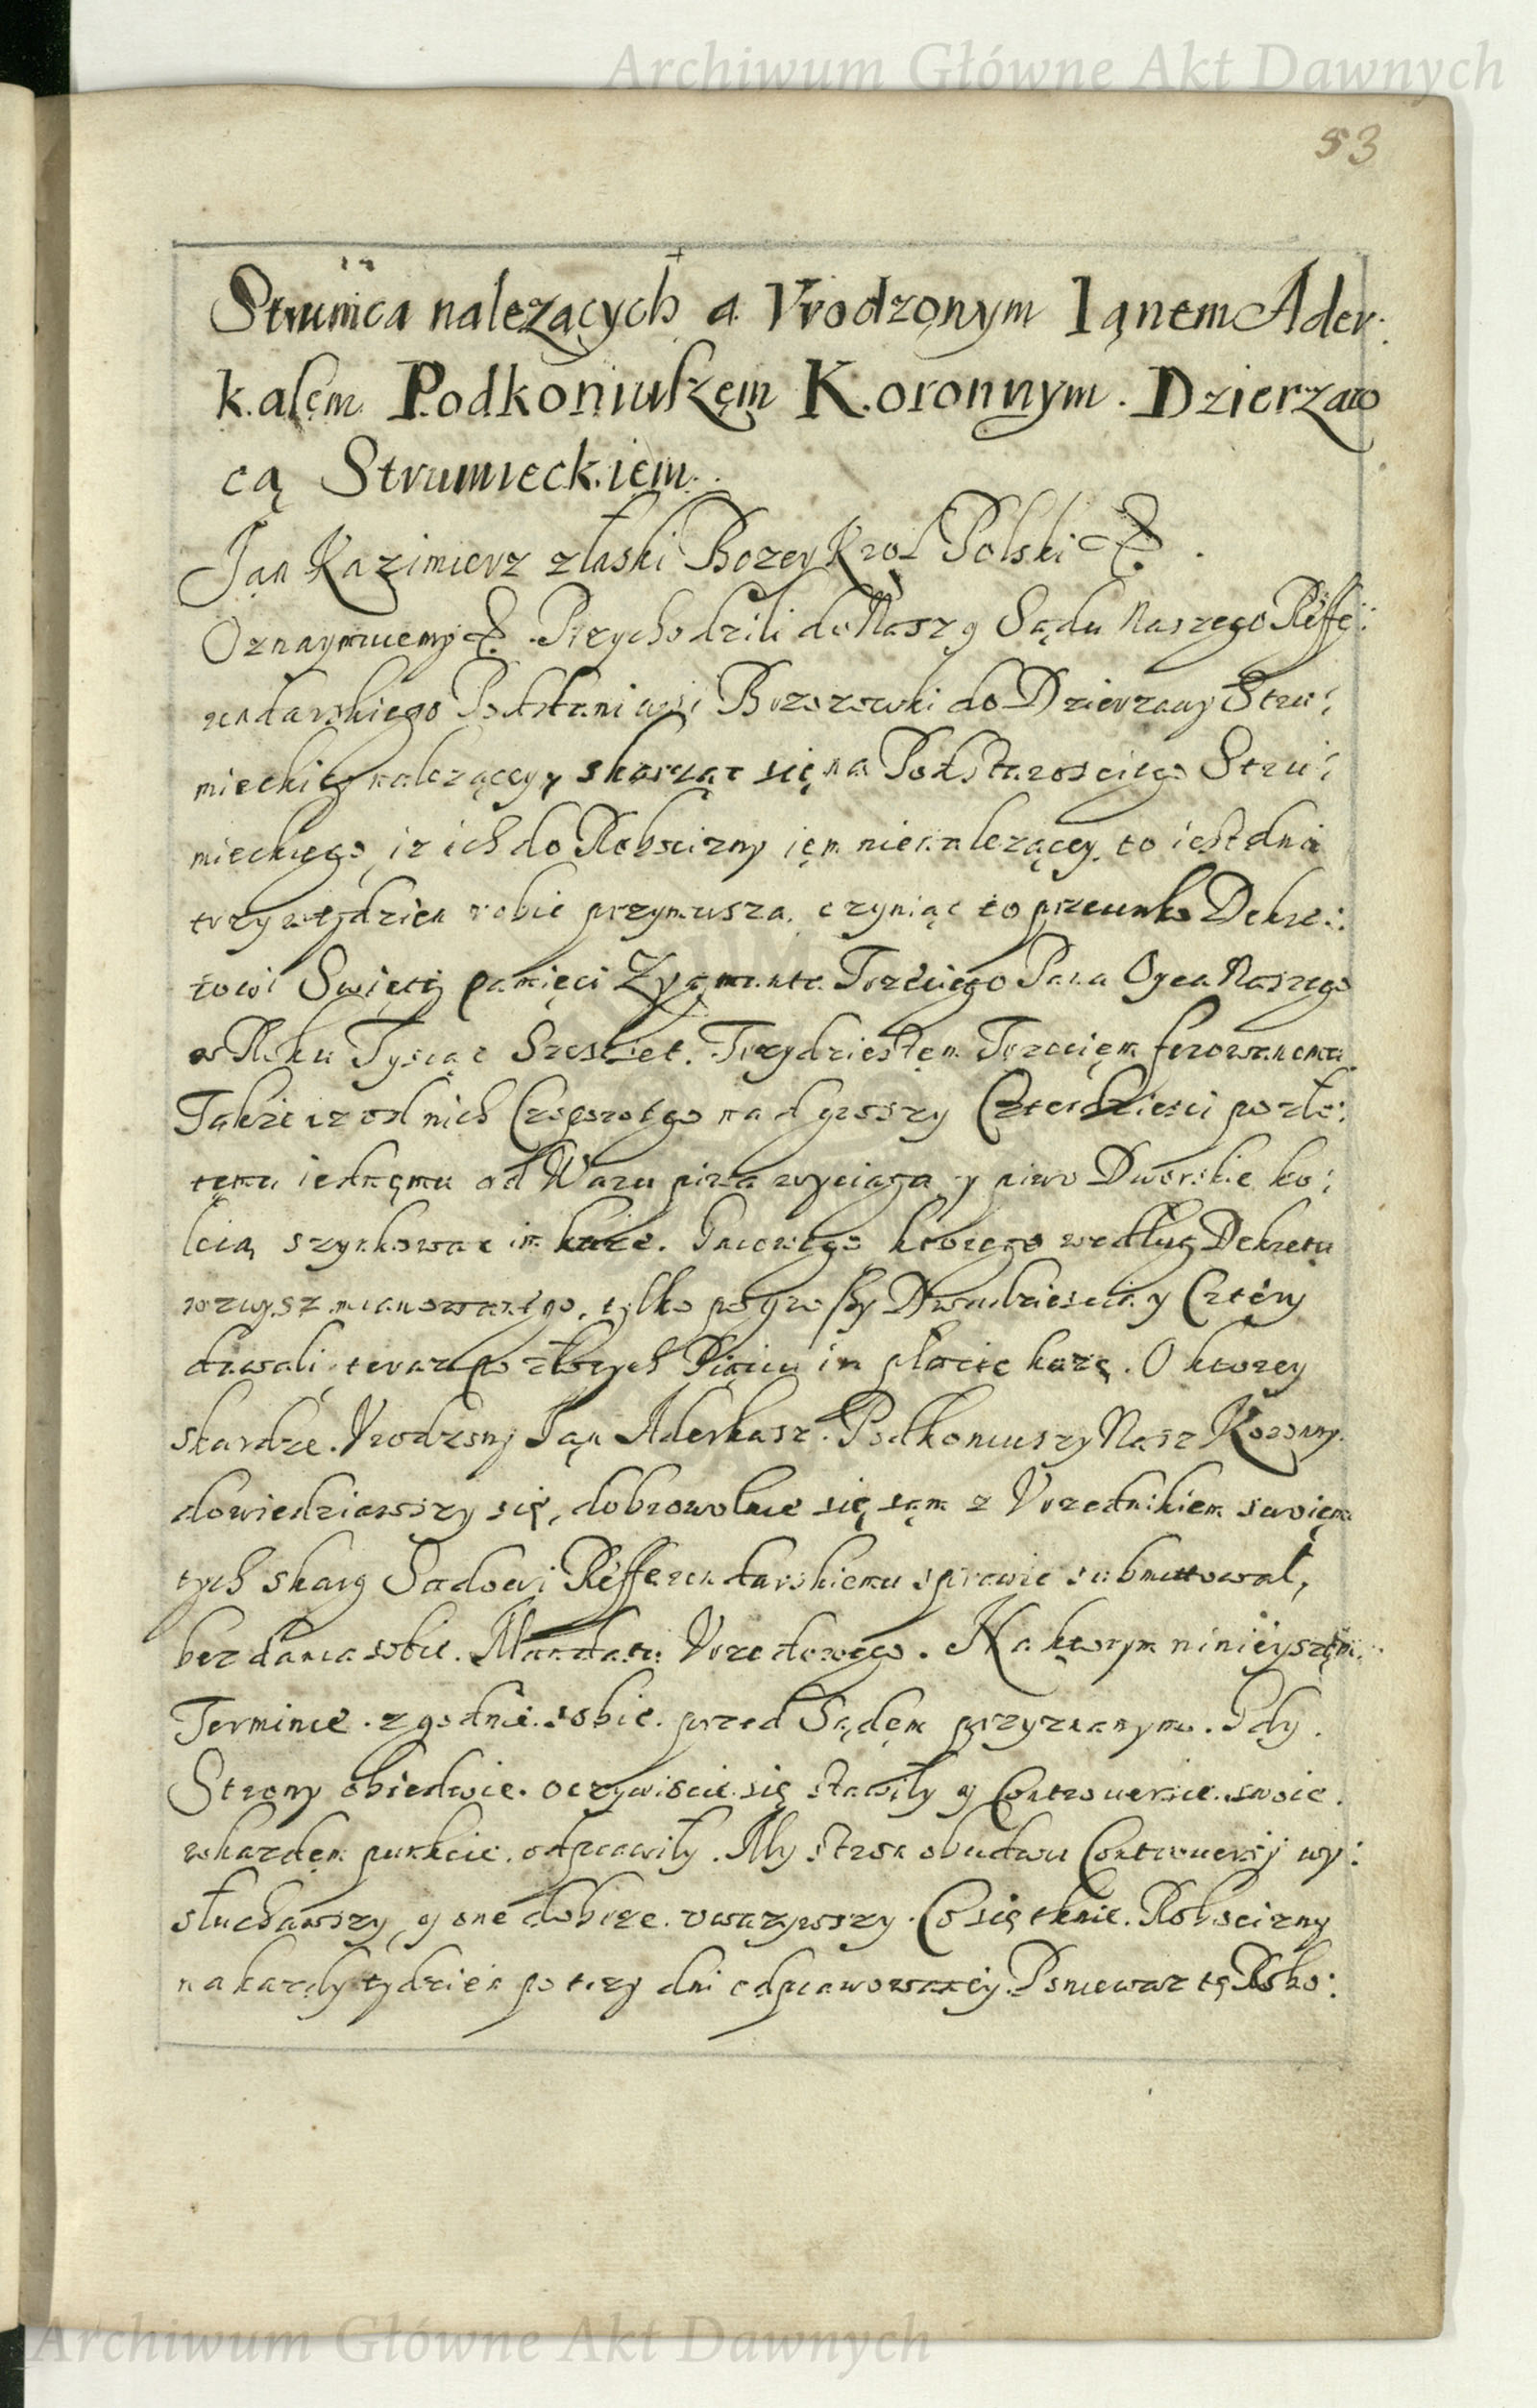 Archiwum Główne Akt Dawnych
53
Strumca nalezących a Vrodzonym Iąnem Ader:
kasęm Podkoniuszęm Koronnym. Dzierzaw
cą Strumieckiem.
Ján Kazimierz z łaski Bozey Krol Polski &.
Oznaymuiemy &. Przychodzili do Naszego Sądu Naszego Reffe:
rendarskiego Poddani wsi Brzozowki do Dzierzawy Stru:
mieckiey nalezącey, skarząc się na Podstarosciego Stru:
mieckiego, iz ich do Robocizny ięm nienalezącey, to iest dnia
trzy w tydzien robic przymusza, czyniąc to przeciwko Dekre:
towi Swiętey pamięci Zygmunta Trzeciego Pana Oyca Naszego
w Roku Tysiąc Szescset Trzydziestęm Trzecięm ferowanemu
Takze iz od nich Czopowego nad groszy Czterdziesci po zło:
tęmu iednęmu od Waru piwa wyciąga y piwo Dworskie ko:
leią szynkowac im kaze. Gaiowego ktorego według Dekretu
wzwysz mianowanego, tylko po groszy Dwudziescia y Cztery
dawali, teraz po złotych Pięciu im płacic kazą. O ktorey
skardze. Vrodzony Ján Aderkasz. Podkoniuszy Nasz Koronny
dowiedziawszy się, dobrowolnie się sąm z Vrzednikiem swoięm
tych skarg Sądowi Refferendarskiemu sprawie submittował,
bez dania sobie. Mandatu Vrzedowego. Na ktorym ninieyszęm
Terminie. zgodnie. sobie. przed Sądęm przyznanym. Gdy.
Strony obiedwie. oczywiscie. się stawiły y Controuersie. swoie.
w kazdęm punkcie. odprawiły. My stron obudwu Controuersiy wy:
słuchawszy, y one dobrze. vwazywszy. Co się tknie. Robocizny
na kazdy tydzien po trzy dni odprawowaney. Poniewaz tę Robo:
Archiwum Główne Akt Dawnych